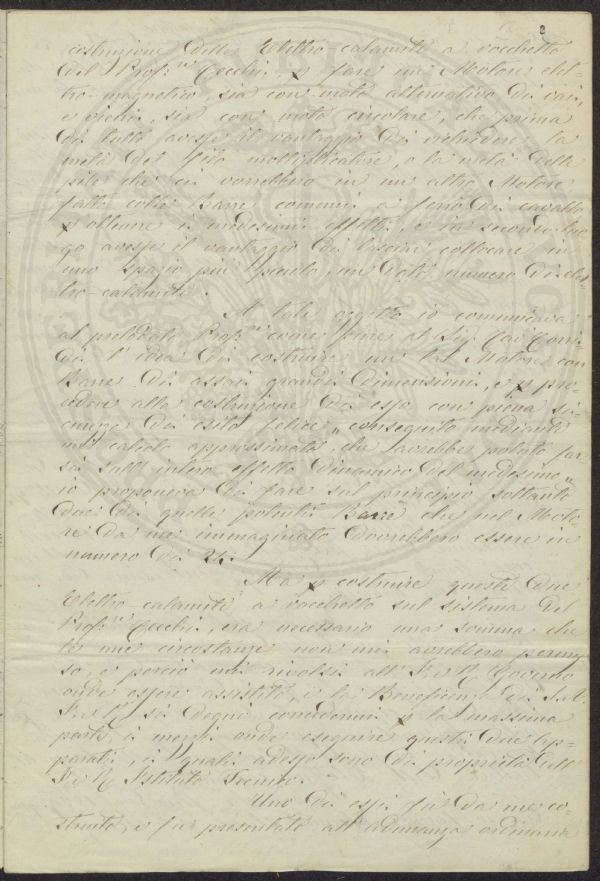 2
costruzione delle Elettro-calamite a rocchetto
del Prof.re Cecchi, p fare un Motore elet-
tro-magnetico, sia con moto alternativo di vai,
e vieni, sia con moto circolare, che prima
di tutto avesse il vantaggio di richiedere la
metà del filo moltiplicatore, o la metà della
pila che ci vorrebbero in un altro Motore
fatto colle Barre comuni a ferro di cavallo
p ottenere i medesimi effetti, e in secondo luo-
go avesse il vantaggio di lasciar collocare in
uno spazio più piccolo, un dato numero di elet-
tro-calamite.
A tale oggetto io comunicava
al prelodato Prof.re come pure al Sig. Cav. Corri-
di l'idea di costruire un tal Motore con
Barre di assai grandi dimensioni, e p pro-
cedere alla costruzione di esso con piena si-
curezza di esito felice, conseguita mediante
un calcolo approssimato che avrebbe potuto far
si sull'intero effetto dinamico del medesimo,
io proponeva di fare sul principio soltanto
due di quelle potenti Barre che nel Moto-
re da me immaginato dovrebbero essere in
numero di 24.
Ma p costruire queste due
Elettro-calamite a rocchetto sul sistema del
Prof.re Cecchi, era necessario una somma che
le mie circostanze non mi avrebbero permes-
so, e perciò mi rivolsi all'I. e R. Governo
onde essere assistito, e la Beneficenza di S.A.
I. e R. si degnò concedermi p la massima
parte i mezzi onde eseguire questi due Ap-
parati, i quali adesso sono di proprietà dell'
I. e R. Istituto Tecnico.
Uno di essi fu da me co-
struito, e fu presentato all'adunanza ordinaria